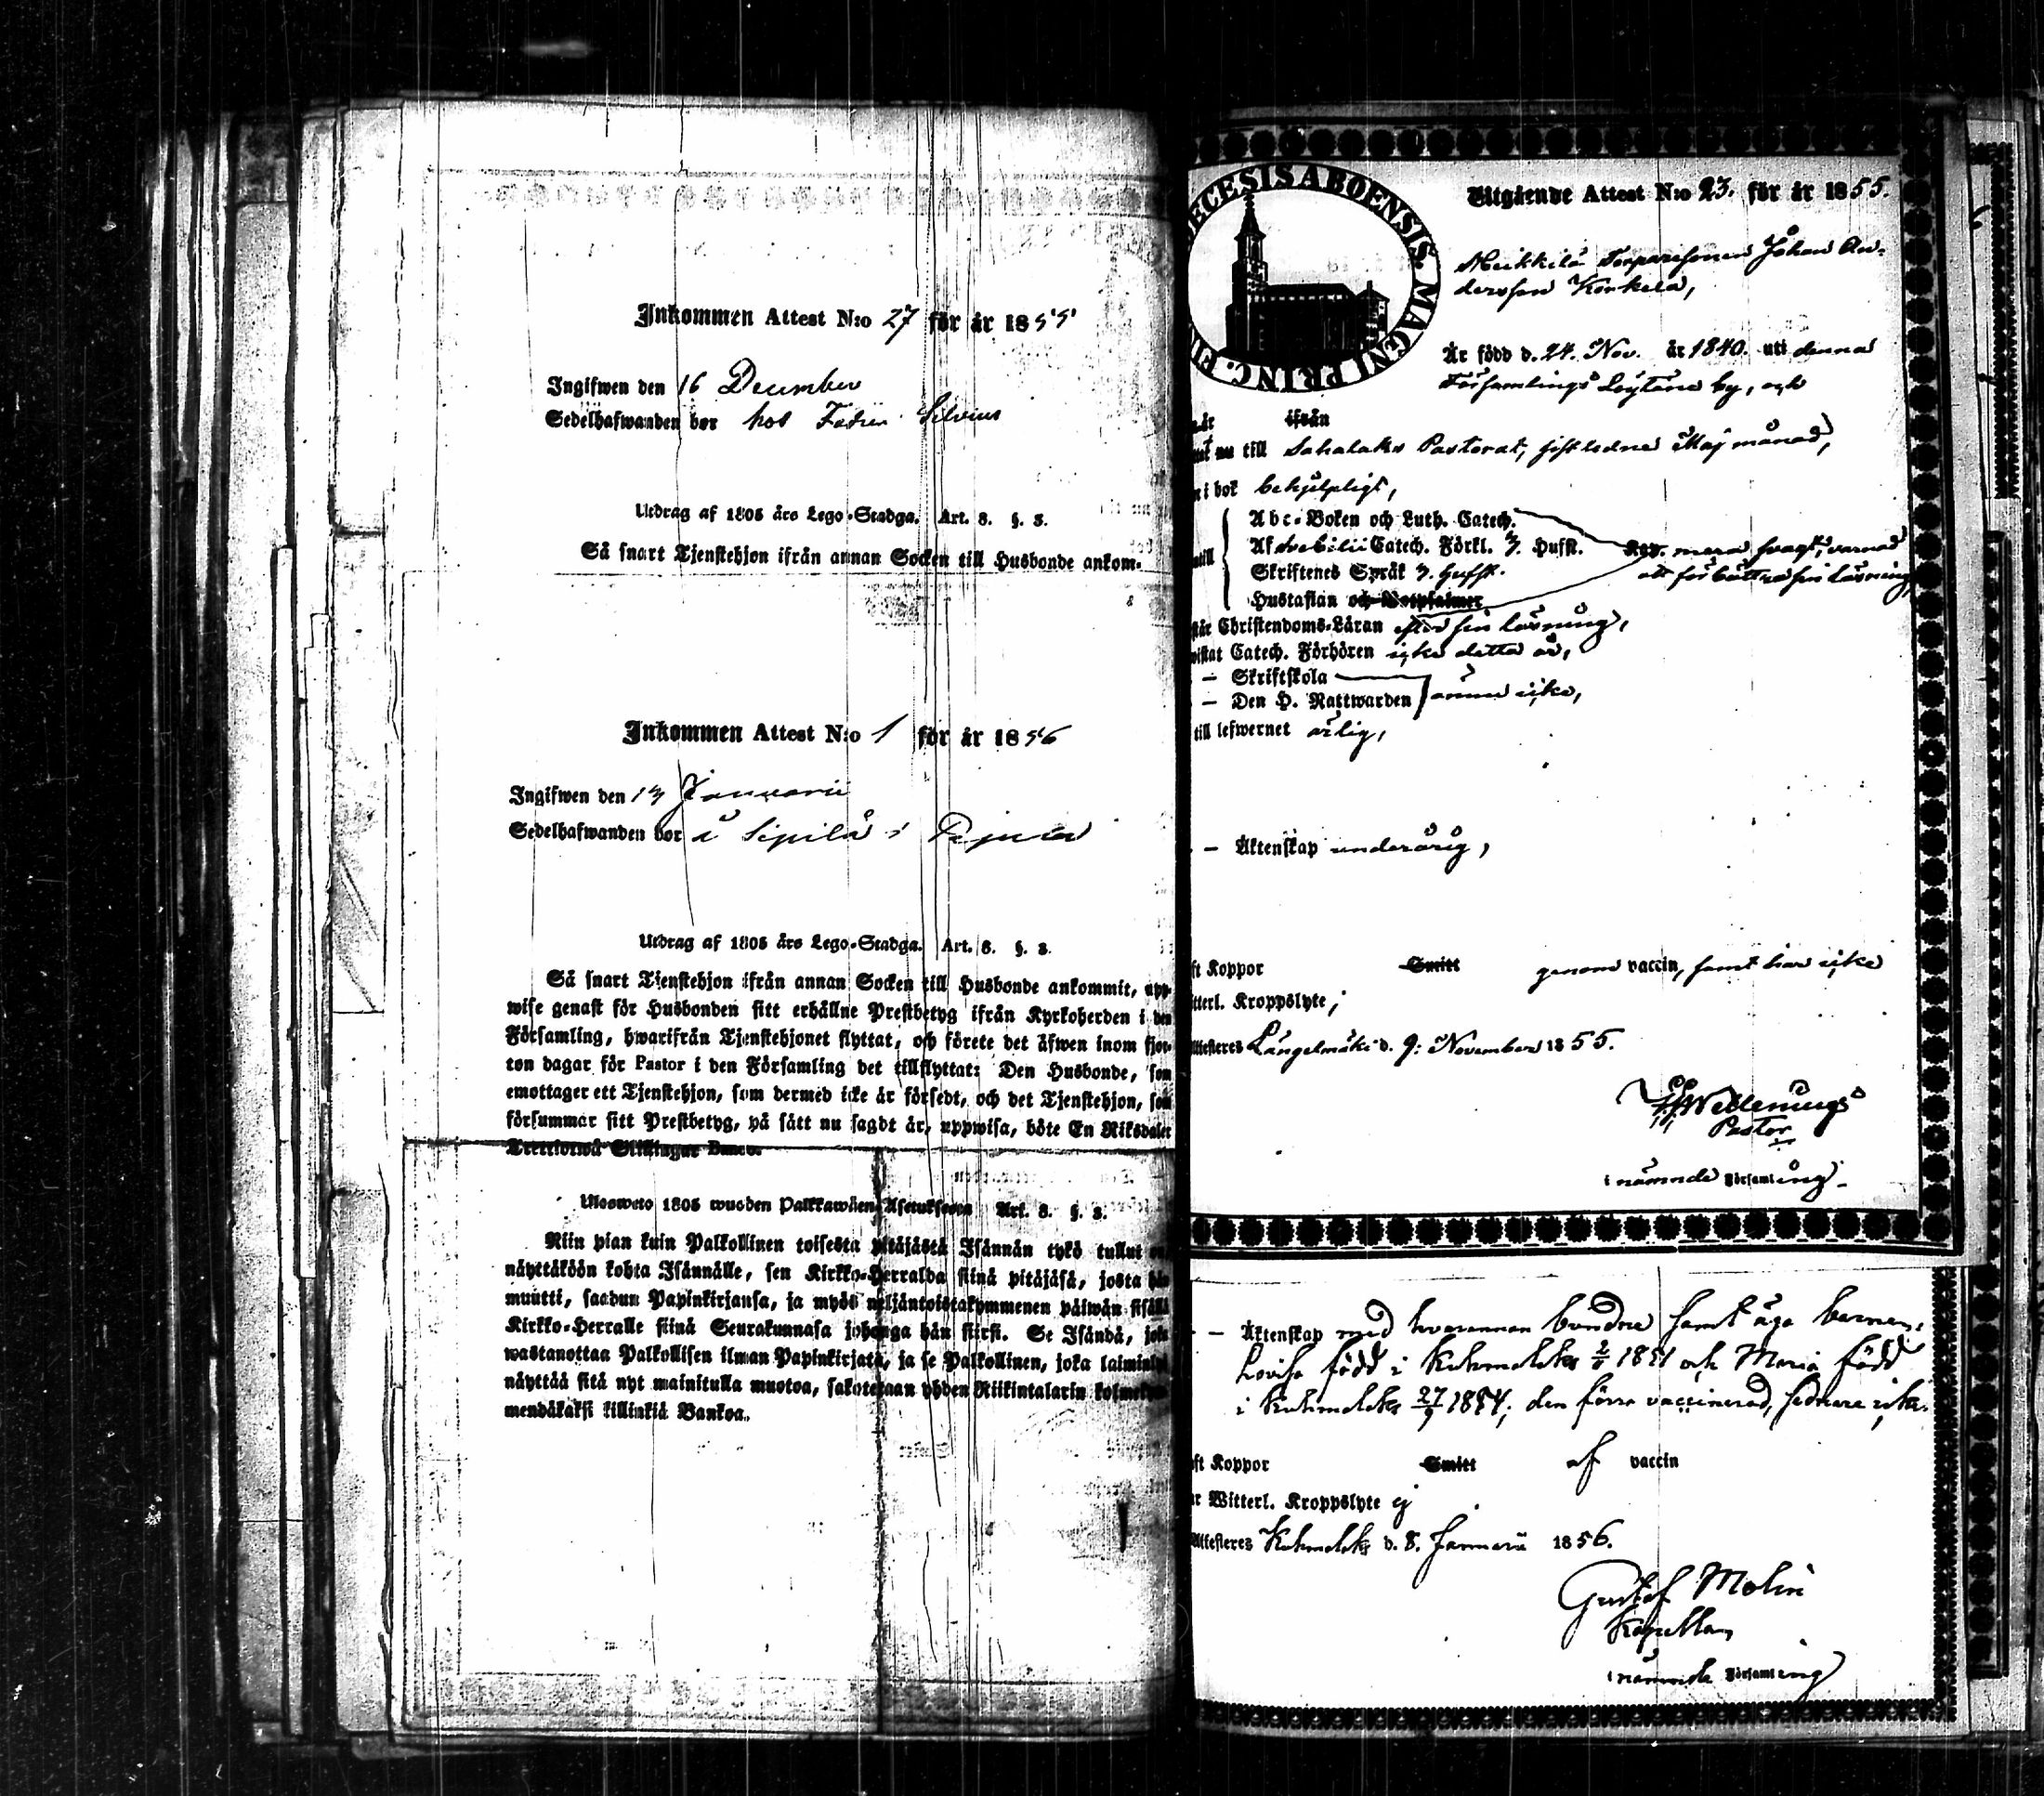 Inkommen Attest N:o 27 för år 1855
Ingifwen den 16 December
Sedelhafwanden bor hos Fadren Silvius
Utdrag af 1805 års Lego-Stadga. Art. 8. §. 3.
Så snart Tjenstehjon ifrån annan Socken till Husbonde ankom-
Inkommen Attest N:o 1 för år 1856
Ingifwen den 13 Januarii
Sedelhafwanden bor å Sipilä i
Utdrag af 1805 års Lego-Stadga. Art. 8. §. 3.
Så snart Tjenstehjon ifrån annan Socken till Husbonde ankommit, upp-
wise genast för Husbonden sitt erhållne Prestbetyg ifrån Kyrkoherden i den
Församling, hwarifrån Tjenstehjonet flyttat, och förete det äfwen inom fjor-
ton dagar för Pastor i den Församling det tillflyttat: Den Husbonde, som
emottager ett Tjenstehjon, som dermed icke är försedt, och det Tjenstehjon, som
försummar sitt Prestbetyg, på sätt nu sagdt är, uppwisa, böte En Riksdaler
Trettiotwå Skillingar Banco.
Ulosweto 1805 wuoden Palkkawäen Asetuksesta Art. 8. §. 3.
Niin pian kuin Palkollinen toisesta pitäjästä Isännän tykö tullut on
näyttäköön kohta Isännälle, sen Kirkko-Herralda siinä pitäjäsä, josta hän
muutti, saadun Papinkirjansa, ja myös neljäntoistakymmenen päiwän sisällä
Kirkko-Herralle siinä Seurakunnasa johonga hän siirsi. Se Isändä, joka
wastanottaa Palkollisen ilman Papinkirjata, ja se Palkollinen, joka laiminlyö
näyttää sitä nyt mainitulla muotoa, sakotetaan yhden Riikintalarin kolmekym-
mendäkaksi killinkiä Bankoa.
ECESIS ABOENSIS. MAGNI PRINC. FI
Utgående Attest N:o 23. för år 1855.
Meikkilä Torparesonen Johan An-
dersson Korkela,
Är född d. 24. Nov. år 1840. uti denna
Församlings Löytänä by, och
är ifrån
nu till Sahalaks Pastorat, sistledne Maj månad,
i bok behjelpligt,
Abc-Boken och Luth. Catech.
Af Svebilii Catech. Förkl. 3. Hufst. mera svagt, varnad
Skriftenes Språk 3. Hufst. att förbättra sin läsning,
Hustaflan och Botpsalmer
står Christendoms-Läran efter sin läsning,
wistat Catech. Förhören icke detta år,
— Skriftskola
— Den H. Nattwarden ännu icke,
till lefwernet ärlig,
— Äktenskap underårig,
ft Koppor Smitt genom vaccin, samt har icke
itterl. Kroppslyte;
Attesteres Längelmäki d. 9: November 1855.
Pastor
i nämnde Församling.
— Äktenskap med hvarannan bundne samt äga barnen:
Lovisa född i Kuhmalaks 1851 och Maria född
i Kuhmalaks 27/9 1854; den förra vaccinerad, sednare icke.
ft Koppor Smitt af vaccin
r Witterl. Kroppslyte ej
Attesteres Kuhmalaks d. 8. Januarii 1856.
Gustaf Molin
Kapellan
i nämnde Församling